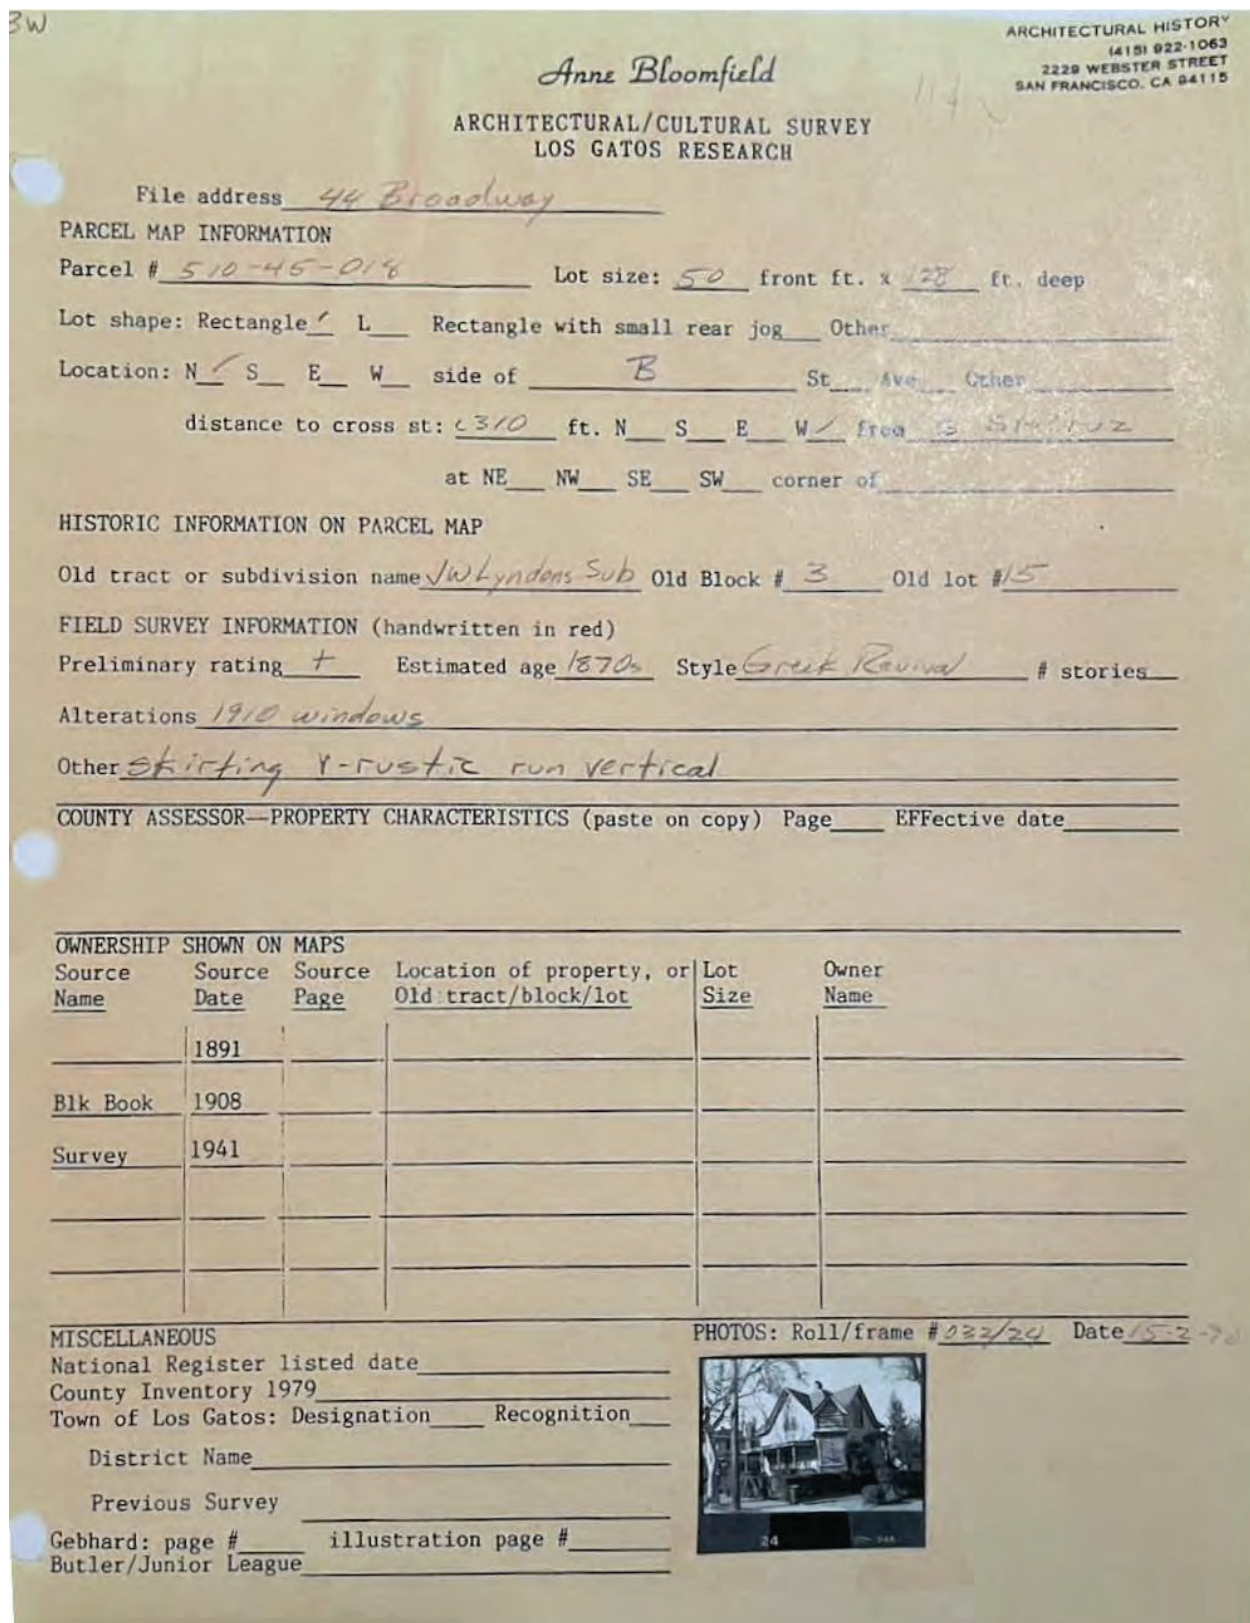 3W
ARCHITECTURAL HISTORY
(415) 922-1063
2229 WEBSTER STREET
SAN FRANCISCO, CA 94115
Anne Bloomfield
ARCHITECTURAL/CULTURAL SURVEY
LOS GATOS RESEARCH
File address 44 Broadway
PARCEL MAP INFORMATION
Parcel # 510-45-018 Lot size: 50 front ft. x 128 ft. deep
Lot shape: Rectangle ✓ L Rectangle with small rear jog Other
Location: N ✓ S E W side of B St Ave Other
distance to cross st: c310 ft. N S E W ✓ from
at NE NW SE SW corner of
HISTORIC INFORMATION ON PARCEL MAP
Old tract or subdivision name JW Lyndons Sub Old Block # 3 Old lot # 15
FIELD SURVEY INFORMATION (handwritten in red)
Preliminary rating + Estimated age 1870s Style Greek Revival # stories
Alterations 1910 windows
Other skirting V-rustic run vertical
COUNTY ASSESSOR—PROPERTY CHARACTERISTICS (paste on copy) Page EFFective date
OWNERSHIP SHOWN ON MAPS
Source Source Source Location of property, or Lot Owner
Name Date Page Old tract/block/lot Size Name
1891
Blk Book 1908
Survey 1941
MISCELLANEOUS PHOTOS: Roll/frame # 032/24 Date 15-2-90
National Register listed date
County Inventory 1979
Town of Los Gatos: Designation Recognition
District Name
Previous Survey
Gebhard: page # illustration page #
24
Butler/Junior League